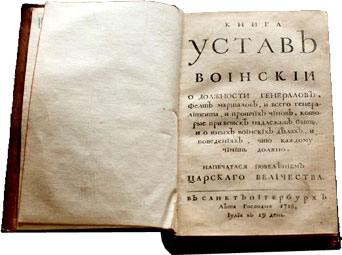 КНИГА
УСТАВЪ
ВОИНСКIИ
О ДОЛЖНОСТИ ГЕНЕРАЛОВЪ,
Фелтъ маршаловъ, и всего генера-
литета, и протчiхъ чiновъ, кото-
рые при воискѣ надлежатъ быть,
и о iныхъ воiнскiхъ дѣлахъ, и
поведенiяхъ, что каждому
чiнiть должно.
НАПЕЧАТАСЯ ПОВЕЛѢНIЕМЪ
ЦАРСКАГО ВЕЛIЧЕСТВА.
ВЪ САНКТЪПIТЕРБУРХѢ
Лѣта Господня 1716,
Iулiа въ 19 день.